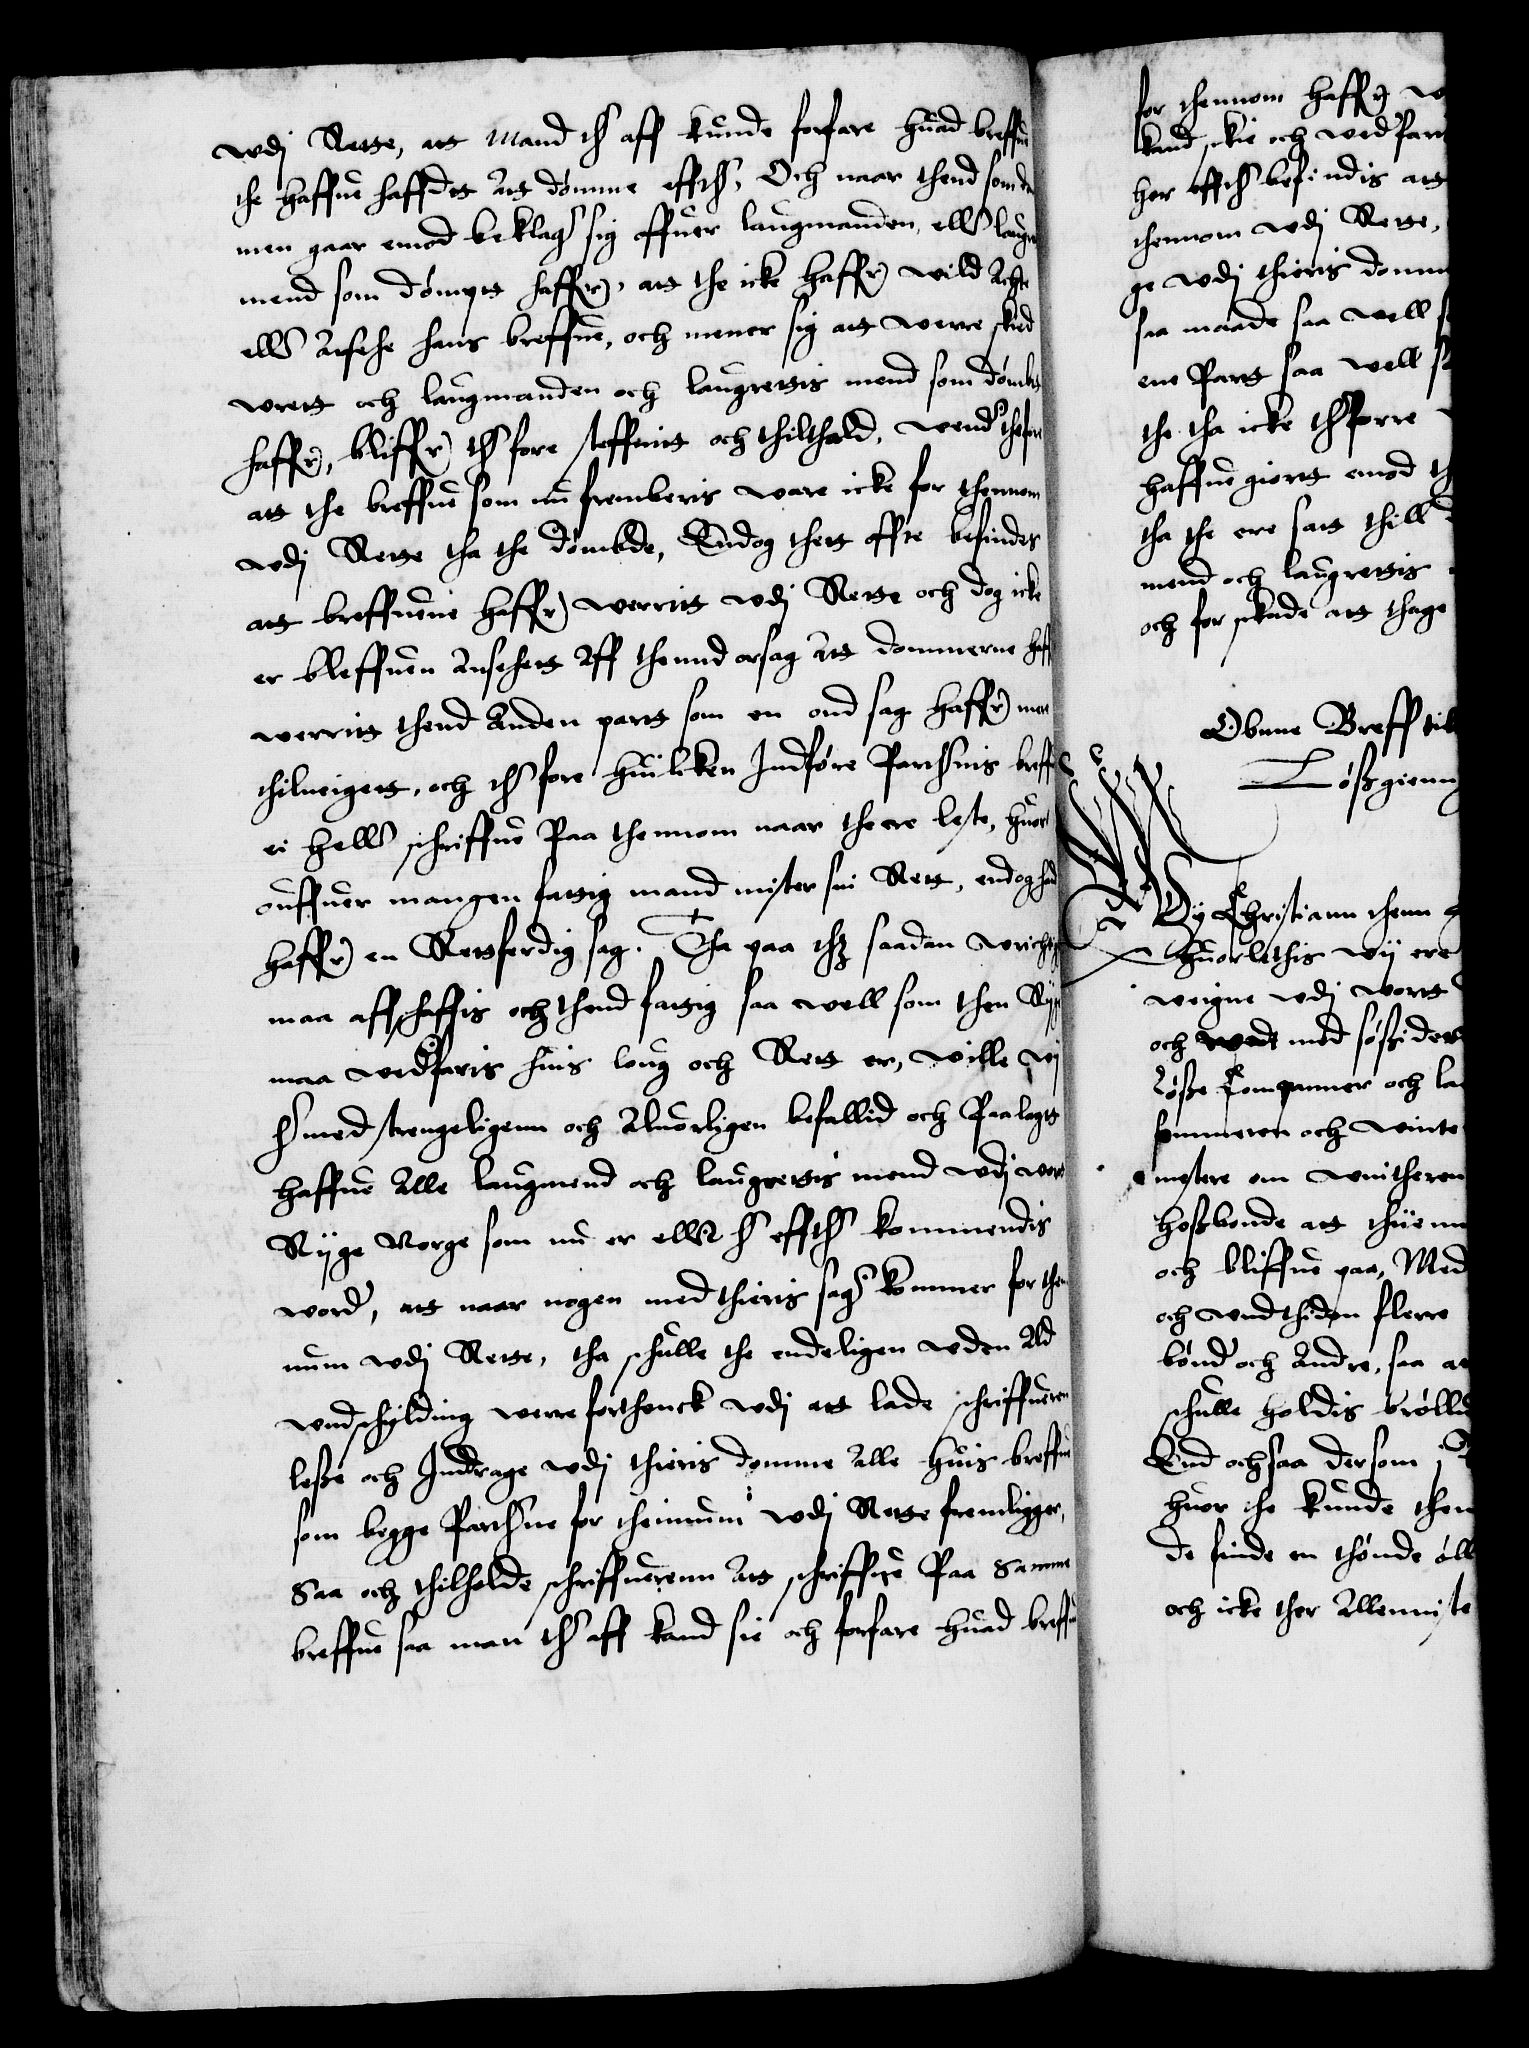 wdj Rette, att mand ther aff kunde forfare huad breffue
the haffue hafft att dømme effther, Och naar thend som dom
men gaar emod beklager sig offuer laugmanden, eller laugrettis
mend som dømptt haffuer, att the icke haffuer wild Achte
eller Ansehe hans breffue, och mener sig att were skied
wrett och laugmanden och laugrettis mend som dømbt
haffuer, bliffuer ther fore steffnitt och thilthald, wender the fore
att the breffue som nu fremberis ware icke for thennom
wdj Rette tha the dømbde, Endog thett offte befindes
att breffuene haffuer werritt wdj Rette och dog icke
er bleffuen Ansehett Aff thennd orsag Att dommerne haffuer
werritt thend Anden partt som en ond sag haffuer mere
thilneigett, och ther fore huilcken Indføre Parthernis breffue
ei heller schriffue Paa thennom naar the ere leste, huor
ouffuer mangen fattig mand mister sin Rett, endog hand
haffuer en Rettferdig sag. Tha paa thz saadan wrichtighed
maa affschaffis och thend fattig saa well som then Rijge
maa wedfaris huis loug och Rett er, wille wj
her med strengeligenn och Aluorligen befallid och Paalagtt
haffue Alle laugmend och laugrettis mend wdj wortt
Rijge Norge som nu er eller her effther kommendis
worder, att naar nogen med thieris sager kommer for then
num wdj Rette, tha schulle the endeligen wden Ald
wndschylding were forthenckt wdj att lade schriffueren
lesse och Inddrage wdj thieris domme Alle huis breffue
som begge Partherne for thennum wdj Rette fremligger,
Saa och thilholde schriffuerenn Att schriffue Paa Samme
breffue saa man ther aff kand sie och forfare huad breffue
for thennom haffuer
kand skie och wedfar
her effther befindis att
thennom wdj Rette,
ge wdj thieris domme
saa maade saa well
ene Partt saa well
the tha icke therforre
haffue giortt emod
tha the ere satt thill
mend och laugrettis
och for skade att thage
Obnne Breff till
Løssgienn
Wij Christiann thenn
huorlethis wij ere
weigne wdj wortt
och med søssider
Løsse Companner och
sommeren och winter
mestere om wintheren
hossbonde att thiene
och bliffue paa, Med
och wndthiden flerre
bønder och Andre, saa
schulle holdis brøllup
End ochsaa dersom
huor the kunde then
de finde en thønde øll
och icke ther Alleniste